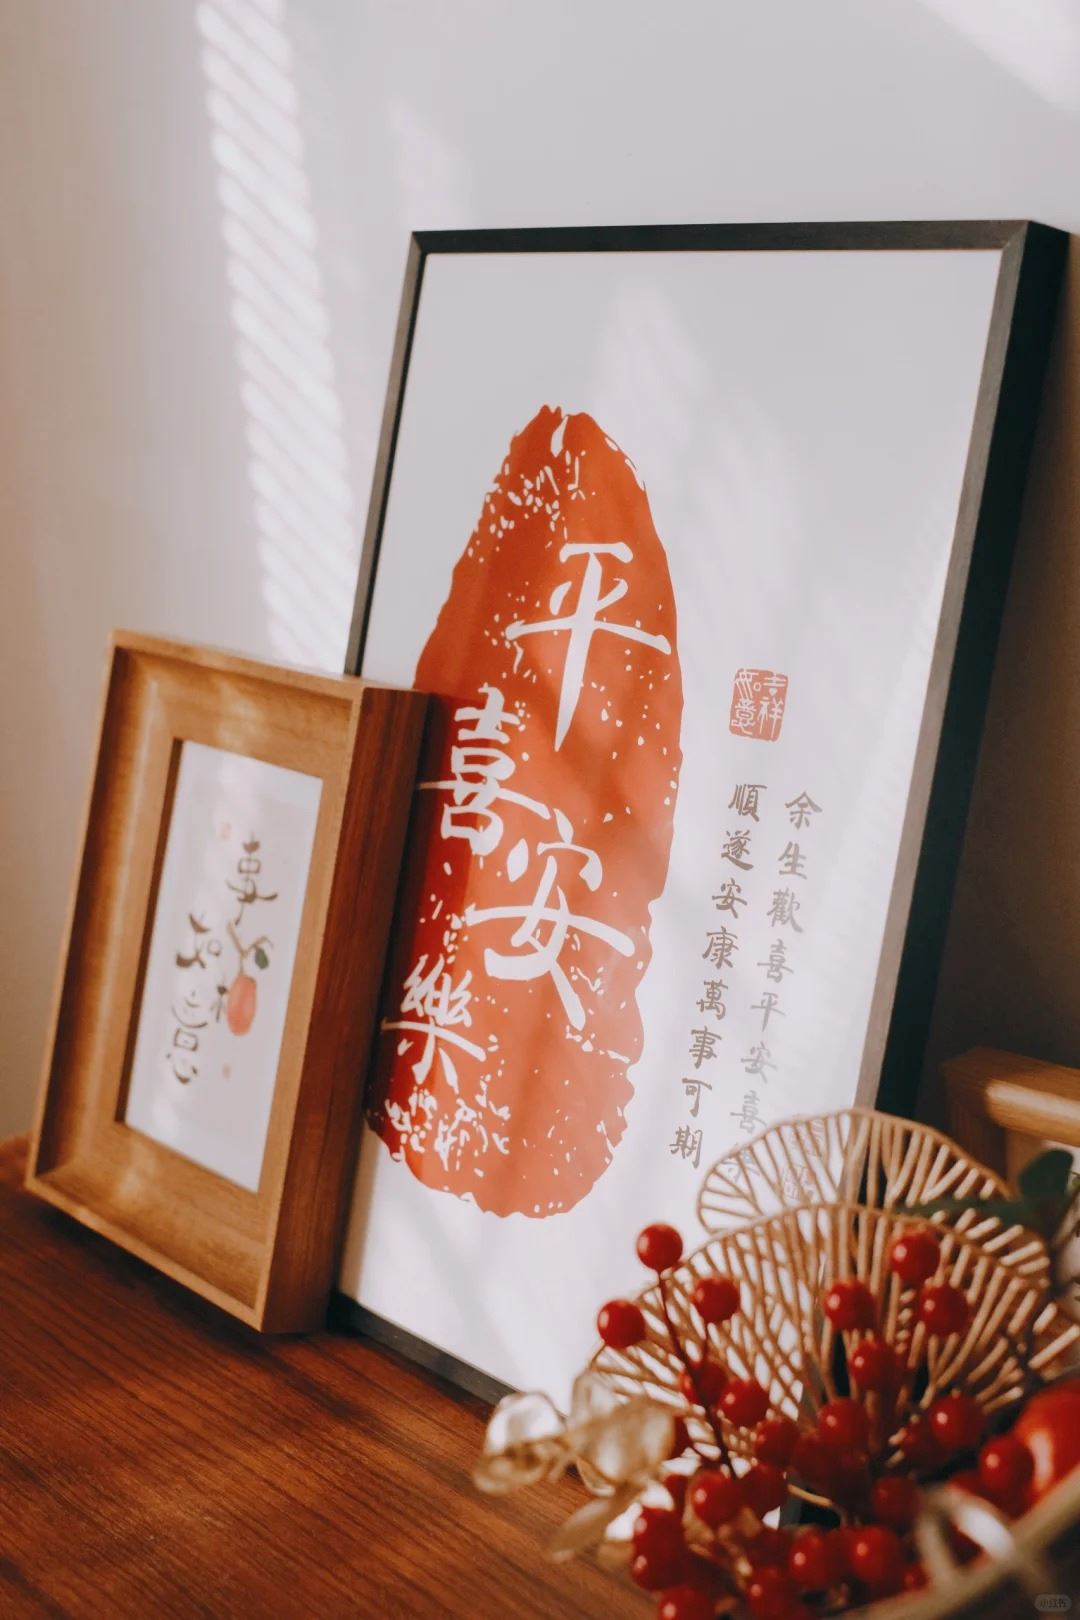 平安
喜樂
吉祥
如意
余生歡喜平安喜
順遂安康萬事可期
事柿
如意
小红书